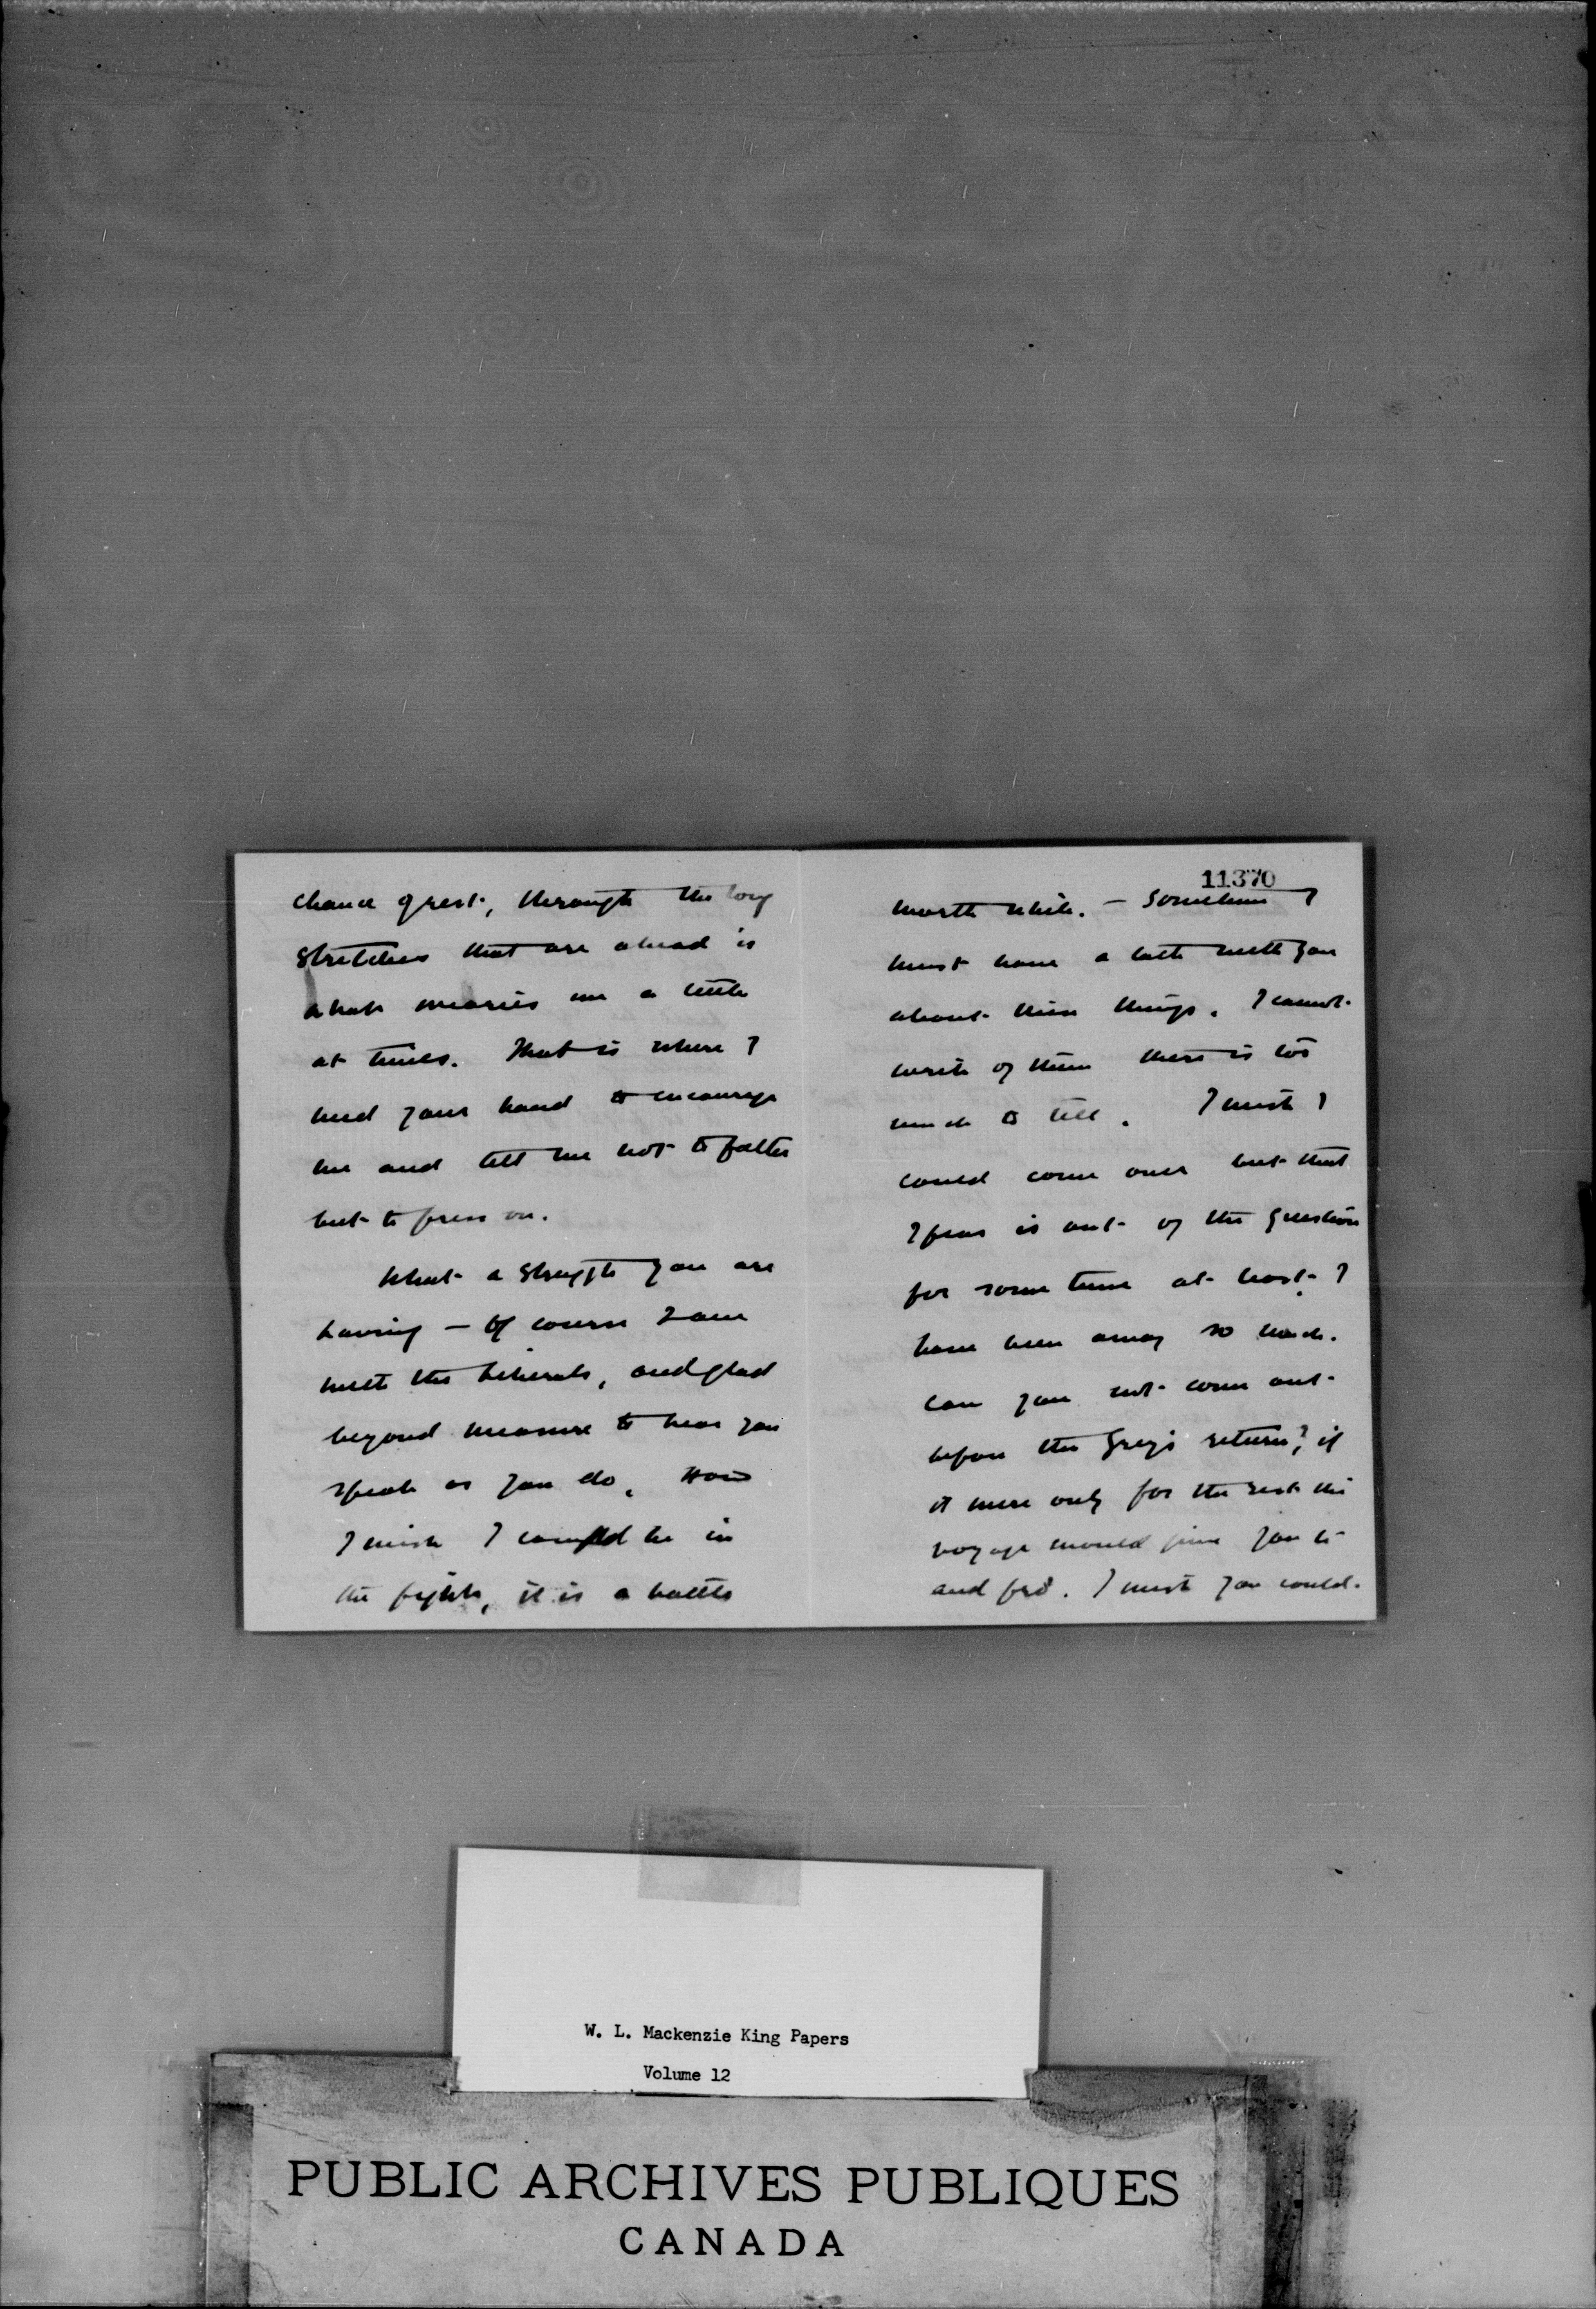 chance of rest, through the long
stretches that are ahead is
what wearies me a little
at times. That is where I
need your hand to encourage
me and tell me not to falter
but to press on.
What a struggle you are
having — Of course I am
with the Liberals, and glad
beyond measure to hear you
speak as you do. How
I wish I could be in
the fight, it is a battle
11370
worth while. — Sometime I
must have a talk with you
about these things. I cannot
write of them there is too
much to tell. I wish I
could come over but that
I fear is out of the question
for some time at least. I
have been away so much.
Can you not come out
before the Greys return? if
it were only for the rest the
voyage would give you to
and fro. I wish you could.
W. L. Mackenzie King Papers
Volume 12
PUBLIC ARCHIVES PUBLIQUES
CANADA